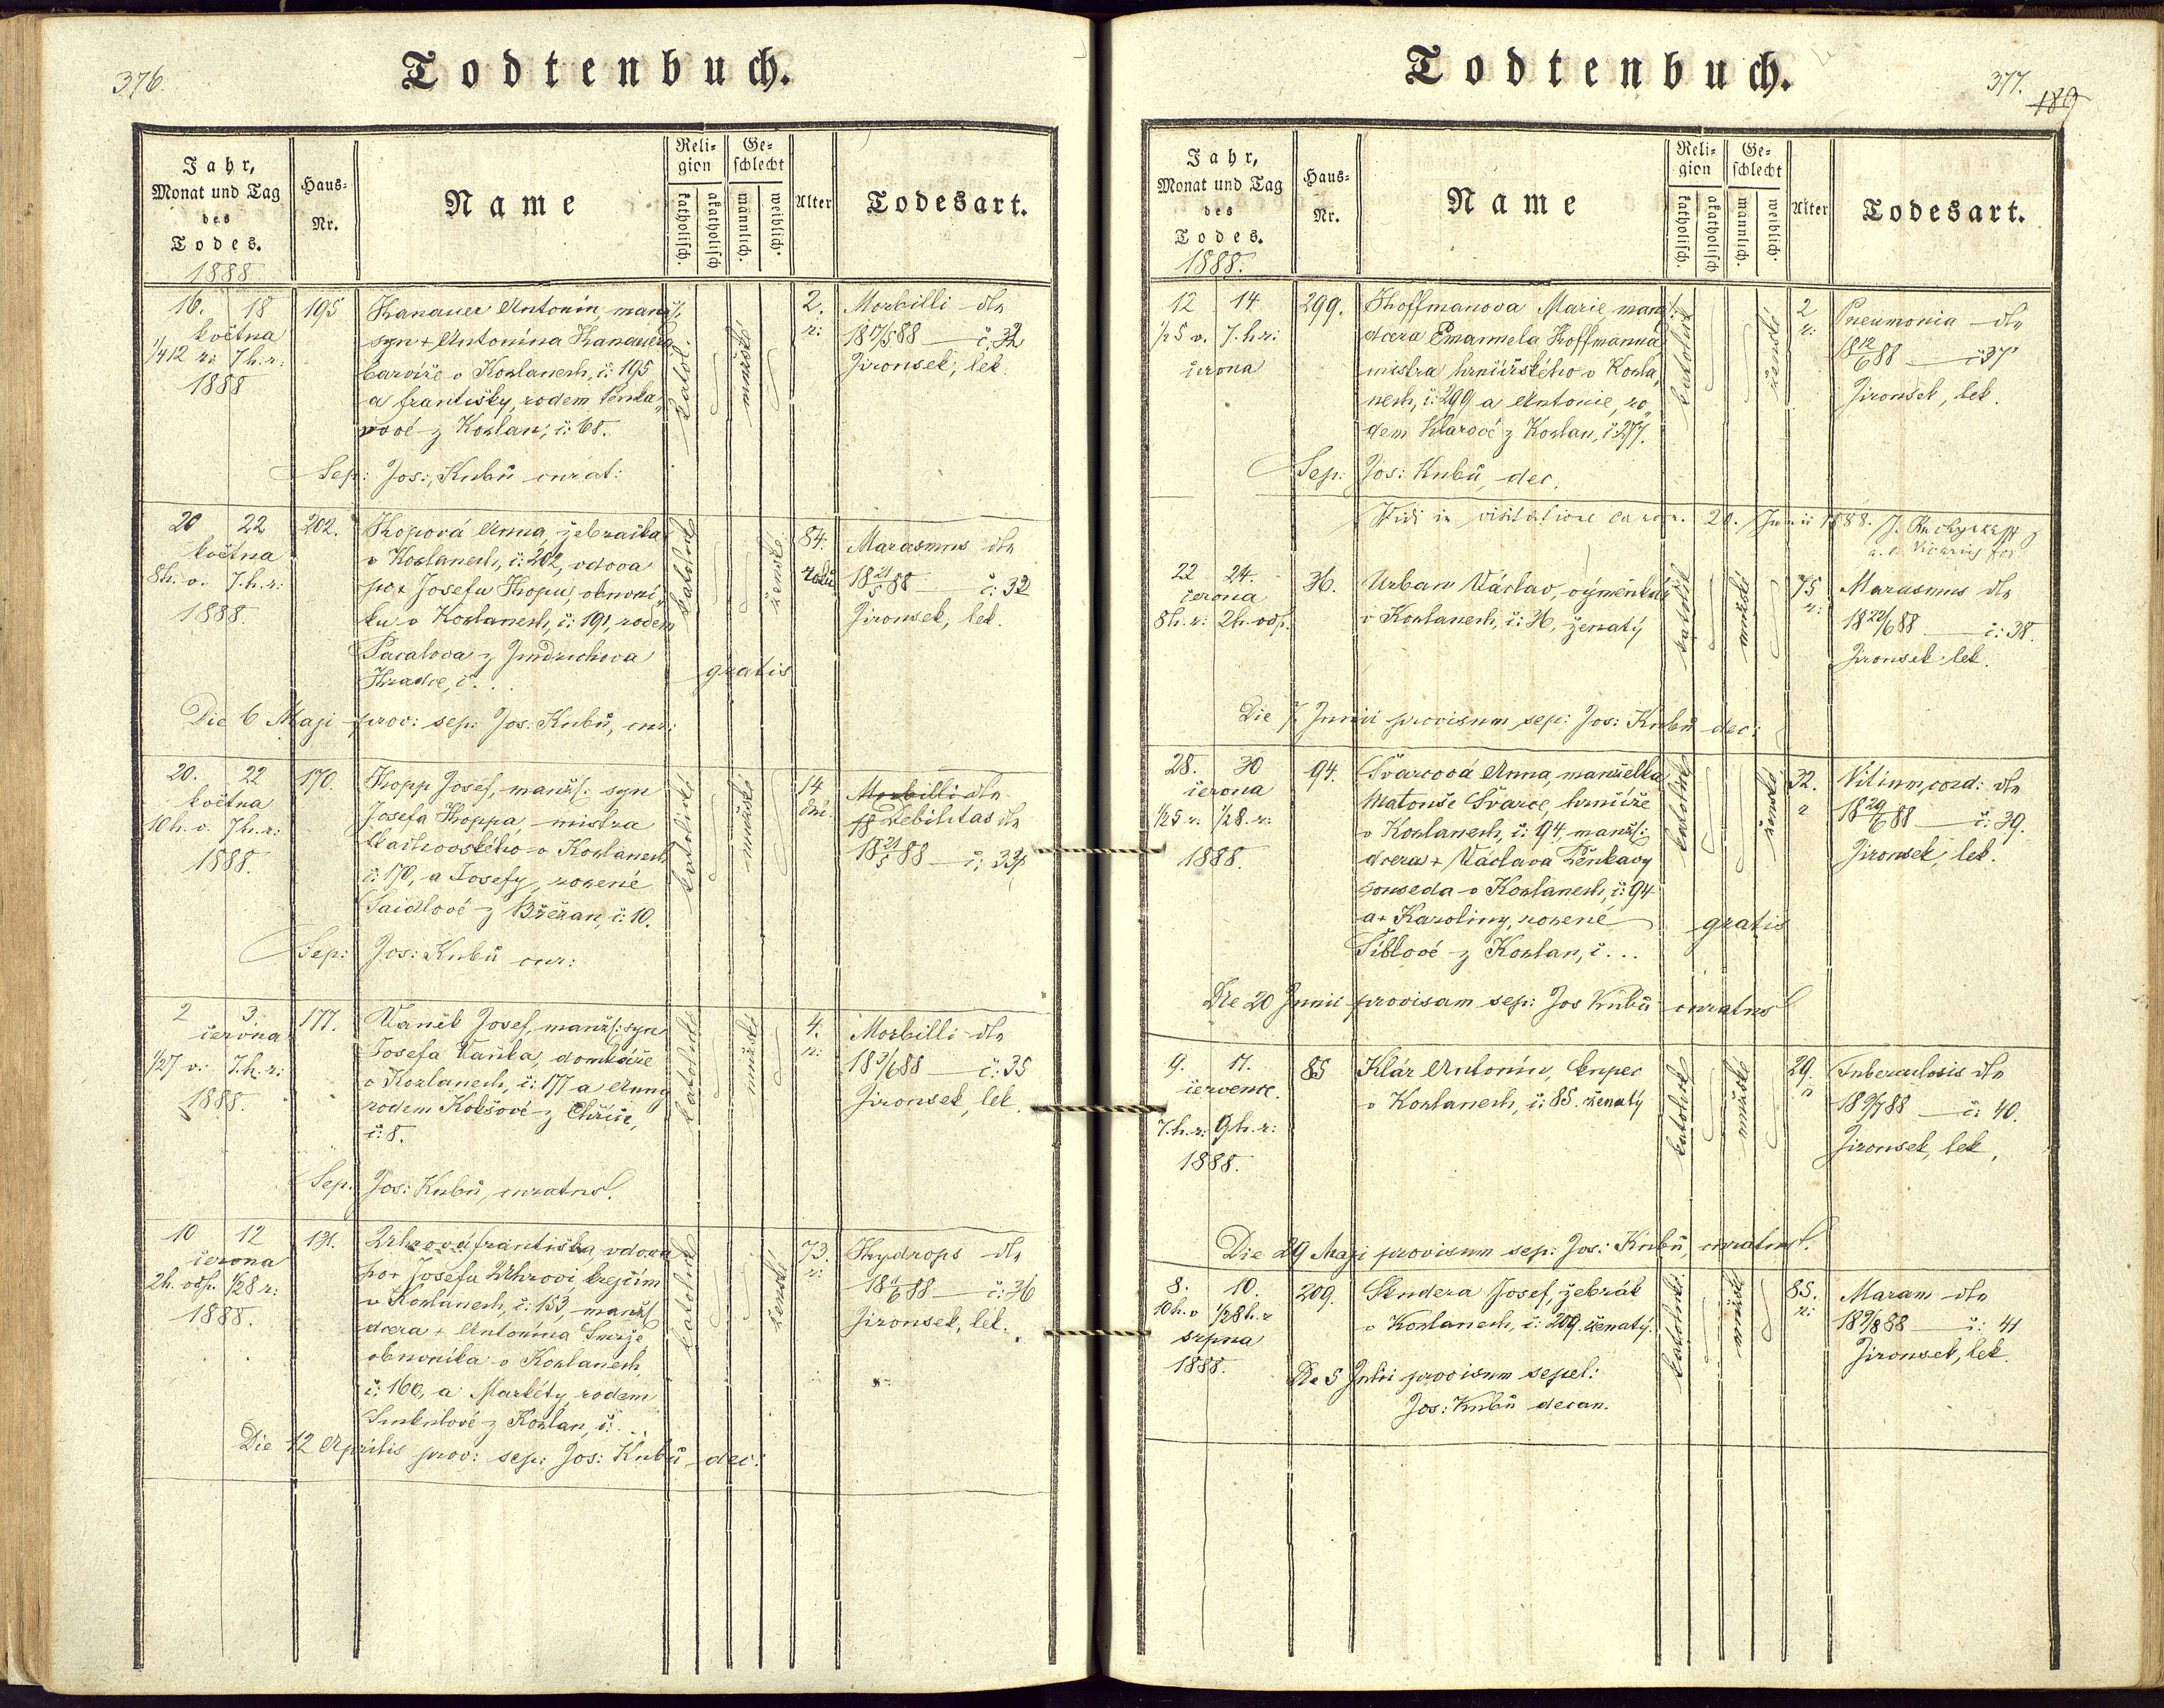 376.
Todtenbuch.
Jahr,
Monat und Tag
des
Todes.
1888
Haus-
Nr.
Name
Reli-
gion
katholisch.
akatholisch
Ge-
schlecht
männlich.
weiblich.
Alter
Todesart.
16. 18
května
1/412 r: 7h. r:
1888
195
Hanauer Antonín, manžs.
syn + Antonína Hanauera
barvíře v Kožlanech, č: 195
a Františky, rodem Ženka„
vové z Kožlan, č: 68.
Sep: Jos: Kubů curat:
katol.
mužské
2.
r:
Morbilli dle
18 17/5 88 — č. 32
Jironsek, lek.
20 22
května
8h. v. 7.h. r:
1888.
202.
Hopová Anna, žebračka
v Kožlanech, č: 202, vdova
po + Josefu Hopu, obuvní„
ku v Kožlanech, č: 191, rodem
Pacalova z Jindřichova
Hradce, č. . .
gratis
Die 6 Maji prov: sep: Jos: Kubů, cur:
katolické
ženské
84.
roků
Marasmus dle
18 21/5 88 — č: 32
Jironsek, lek.
20. 22
května
10h. v. 7h. r:
1888.
170.
Hopp Josef, manžs: syn
Josefa Hoppa, mistra
v Kožlanech
č: 170, a Josefy, rozené
Saidlové z Břežan, č: 10.
Sep: Jos: Kubů cur:
katolické
mužské
14
dní.
Morbilli dle
Debilitas dle
18 21/5 88 — č: 33
2 3.
června
1/27 v. 7.h. r:
1888.
177.
Vaněk Josef, manžs: syn
Josefa Vaňka, domkáře
v Kožlanech, č: 177 a Anny
rodem Kokšové z Chříče,
č: 8.
Sep. Jos: Kubů, curatus.
katolické
mužské
4.
r:
Morbilli dle
18 3/6 88 — č: 35
Jironsek, lek.
10 12
června
2h. odp. 1/28 r:
1888.
131.
Uhrová Františka, vdova
po + Josefu Uhrovi krejčím
v Kožlanech, č: 153, manžs
dcera + Antonína Smrže
obuvníka v Kožlanech,
č: 160, a Markéty, rodem
z Kožlan, č: . .
Die 12 Aprilis prov: sep: Jos: Kubů dec:
katolické
ženské
73.
r:
Hydrops dle
18 11/6 88 — č: 36
Jironsek, lek.
377.
189
Todtenbuch.
Jahr,
Monat und Tag
des
Todes.
1888.
Haus-
Nr.
Name
Reli-
gion
katholisch.
akatholisch
Ge-
schlecht
männlich.
weiblich.
Alter
Todesart.
12 14
1/25 v. 7.h. r:
června
299.
Hoffmanova Marie, manž.
dcera Emanuela Hoffmanna
mistra hrnčířského v Kožla„
nech, č: 299 a Antonie, ro„
dem Klarové z Kožlan, č. 277.
Sep: Jos: Kubů, dec.
katolické
ženské
2
r:
Pneumonia dle
18 12/6 88 — č 37
Jironsek, lek.
Vidi in visitatione canon. 20. Junii 1888.
22 24.
června
8h. r: 2h. odp.
36.
Urban Václav, výměnkář
v Kožlanech, č: 36, ženatý
Die 7. Junii provisum sep: Jos: Kubů dec:
katolické
mužské
75
r:
Marasmus dle
18 22/6 88 — č: 38.
Jironsek lek.
28. 30
června
1/25 r. 1/28. r:
1888.
94.
Švarcová Anna, manželka
Matouše Švarce, hrnčíře
v Kožlanech, č: 94, manžs:
dcera + Václava Ženkavy
souseda v Kožlanech, č: 94
a + Karoliny, rozené
Šiblové z Kožlan, č. . .
gratis
Die 20 Junii provisam sep: Jos Kubů curatus
katolické
ženské
32.
r
Vitium, cord: dle
18 29/6 88 — č. 39.
Jironsek, lek.
9. 11.
července.
7.h. r: 9h. r:
1888.
85
Klár Antonín, kupec
v Kožlanech, č: 85. ženatý
Die 29 Maji provisum sep: Jos: Kubů, curatus.
katolické
mužské
29.
r
Tuberculosis dle
18 9/7 88 — č: 40.
Jironsek, lek.
8. 10.
10h. v 1/28h. r
srpna
1888.
209.
Skudera Josef, žebrák
v Kožlanech, č: 209. ženatý.
Die 5 Julii provisum sepel:
Jos: Kubů decan.
katolické
mužské
85.
r:
Maram dle
18 9/8 88 — č: 41
Jironsek, lek.